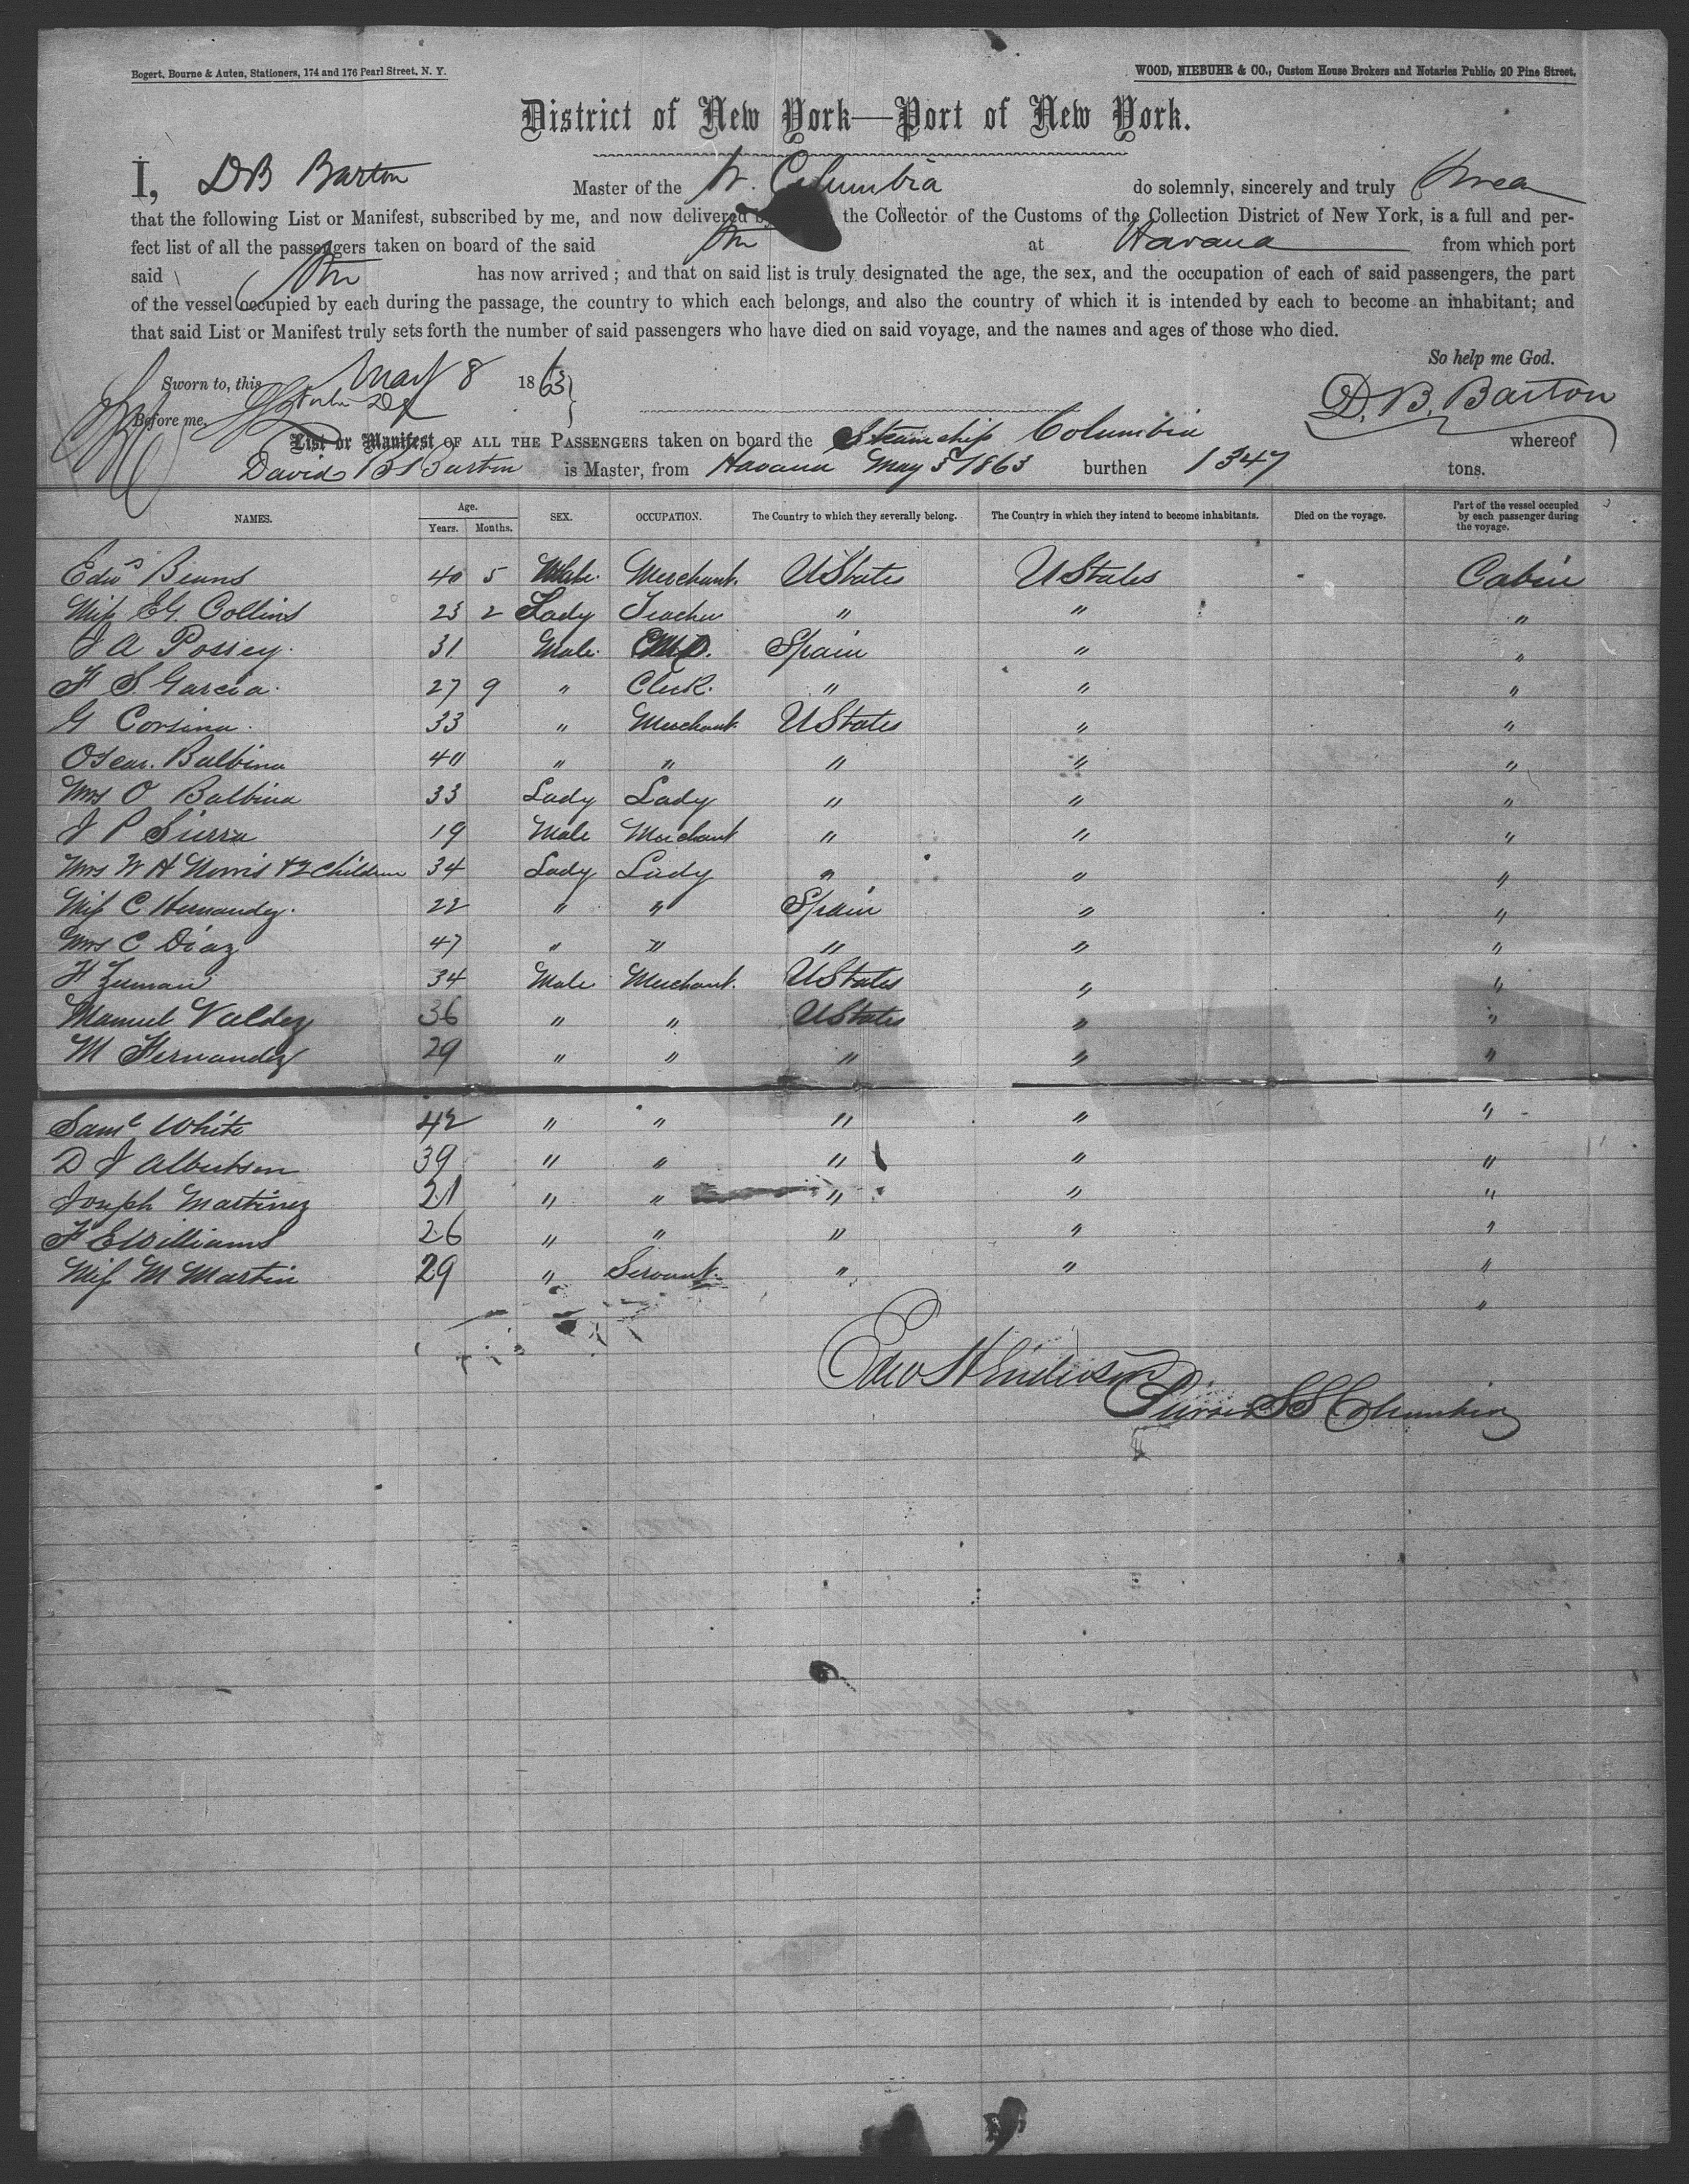 Bogert, Bourne & Auten, Stationers, 174 and 176 Pearl Street, N. Y.
WOOD, NIEBUHR & CO., Custom House Brokers and Notaries Public, 20 Pine Street.
District of New York—Port of New York.
I, DB Barton Master of the Columbia do solemnly, sincerely and truly Swear
that the following List or Manifest, subscribed by me, and now delivered the Collector of the Customs of the Collection District of New York, is a full and per-
fect list of all the passengers taken on board of the said Str at Havana from which port
said Str has now arrived; and that on said list is truly designated the age, the sex, and the occupation of each of said passengers, the part
of the vessel occupied by each during the passage, the country to which each belongs, and also the country of which it is intended by each to become an inhabitant; and
that said List or Manifest truly sets forth the number of said passengers who have died on said voyage, and the names and ages of those who died.
So help me God.
Sworn to, this May 8 1863
D. B. Barton
Before me,
List or Manifest OF ALL THE PASSENGERS taken on board the Steamship Columbia whereof
David B Barton is Master, from Havana May 3 1863 burthen 1347 tons.
NAMES. Age. Years. Months. SEX. OCCUPATION. The Country to which they severally belong. The Country in which they intend to become inhabitants. Died on the voyage. Part of the vessel occupied by each passenger during the voyage.
Edwd Binns 40 5 Male. Merchant. UStates UStates Cabin
Miss EG. Collins 23 2 Lady Teacher " " "
J A Possey. 31 Male. Spain " "
F S. Garcia. 27 9 " Clerk. " " "
G Corsina. 33 " Merchant. UStates " "
Oscar. Balbina 40 " " " " "
Mrs O Balbina 33 Lady Lady " " "
J P Sierra 19 Male Merchant " " "
Mrs W H Norris & 2 Children 34 Lady Lady " " "
Miss C Hernandez. 22 " " Spain " "
Mrs C Diaz 47 " " " " "
F Zeman 34 Male Merchant. UStates " "
Manuel Valdez 36 " " UStates " "
M Fernandez 29 " " " " "
Saml White 42 " " " " "
D J Albertson 39 " " " " "
Joseph Martinez 21 " " " " "
F E Williams 26 " " " " "
Miss M Martin 29 " Servant. " " "
"
Purser SS Columbia